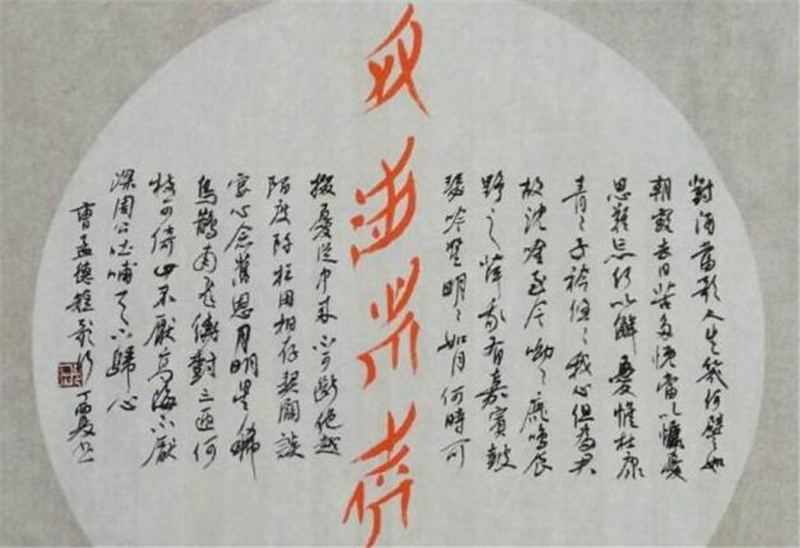 對酒當歌人生幾何譬如
朝露去日苦多慨當以慷憂
思難忘何以解憂惟杜康
青々子衿悠々我心但為君
故沈吟至今呦々鹿鳴食
野之苹我有嘉賓鼓
瑟吹笙明々如月何時可
掇憂從中來不可斷絕越
陌度阡枉用相存契闊談
宴心念舊恩月明星稀
烏鵲南飛繞樹三匝何
枝可依山不厭高海不厭
深周公吐哺天下歸心
曹孟德短歌行 丁酉夏